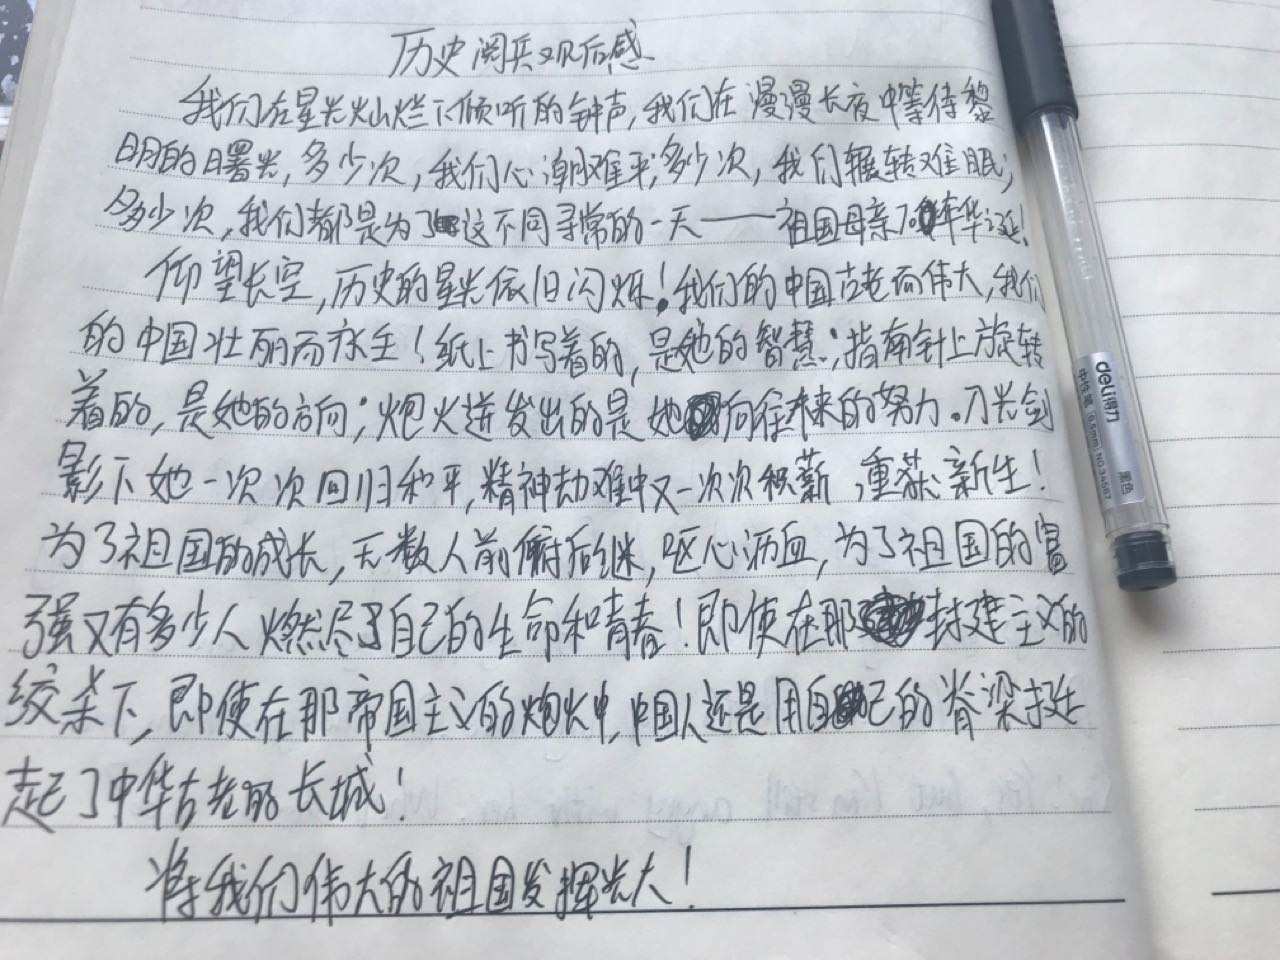 历史阅兵观后感
我们在星光灿烂下倾听的钟声，我们在漫漫长夜中等待黎
明的曙光，多少次，我们心潮难平；多少次，我们辗转难眠；
多少次，我们都是为了这不同寻常的一天——祖国母亲70年华诞！
仰望长空，历史的星光依旧闪烁！我们的中国古老而伟大，我们
的中国壮丽而永生！纸上书写着的，是她的智慧；指南针上旋转
着的，是她的方向；炮火迸发出的是她向往未来的努力。刀光剑
影下她一次次回归和平，精神劫难中又一次次积薪，重获新生！
为了祖国的成长，无数人前俯后继，呕心沥血，为了祖国的富
强又有多少人燃尽了自己的生命和青春！即使在那封建主义的
绞杀下，即使在那帝国主义的炮火中，中国人还是用自己的脊梁挺
起了中华古老的长城！
将我们伟大的祖国发挥光大！
deli得力
中性笔 0.5mm NO.34567
黑色